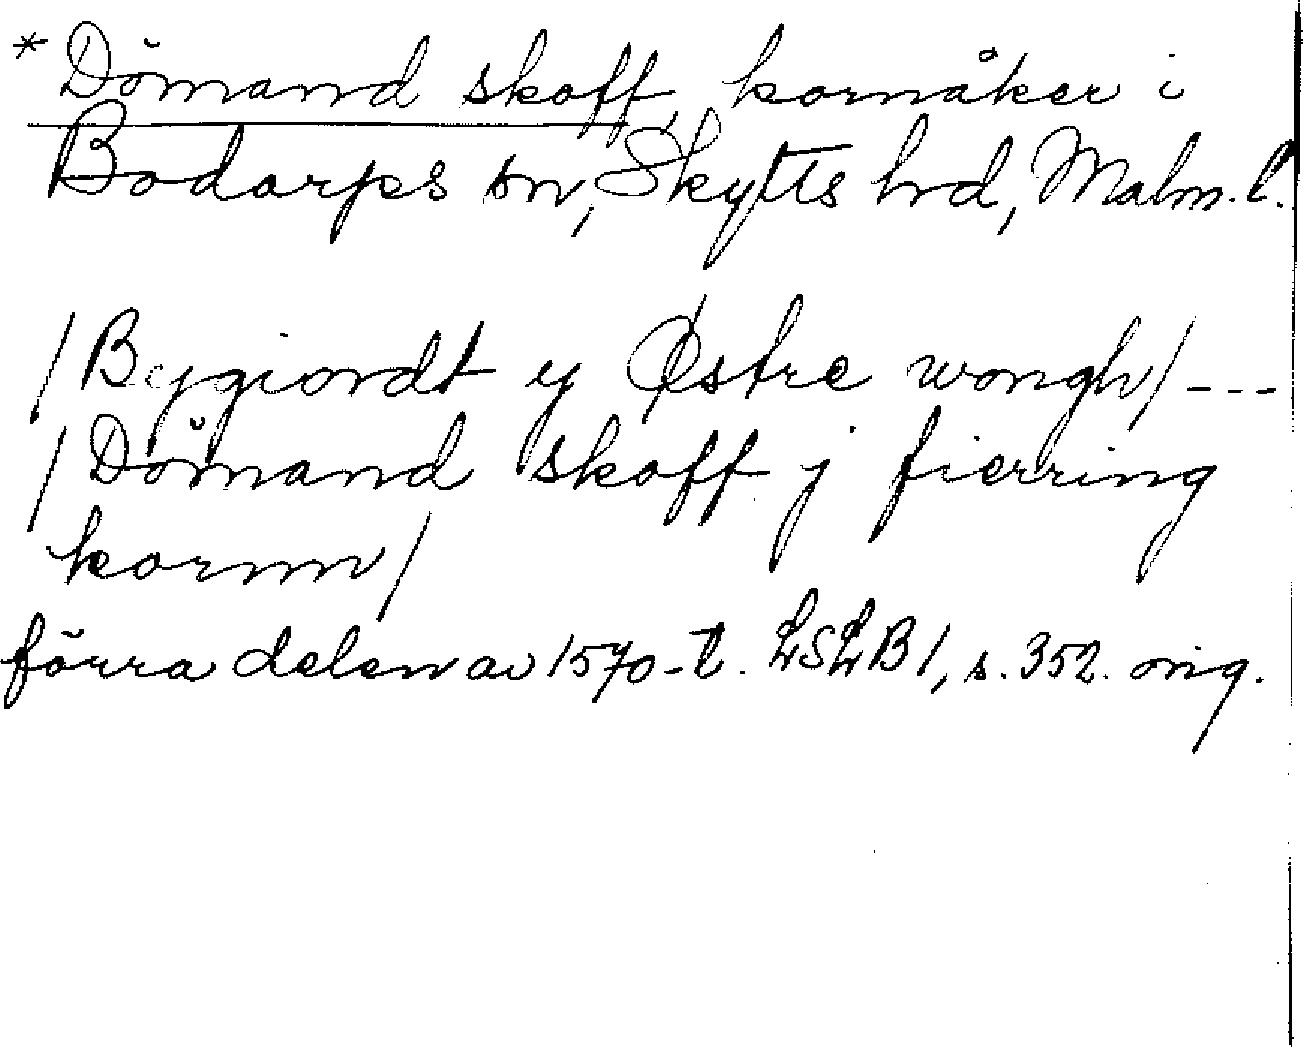 *Dömand skoff, kornåker i
Bodarps sn, Skytts hd, Malm. l.
/Bygiordt y Østre wongh/ ---
/Dömand skoff j fierring
kornn/
förra delen av 1570-t. LSLB1, s. 352. orig.